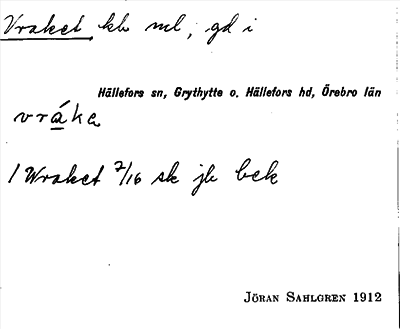 Vraket, kb ml, gd i
Hällefors sn, Grythytte o. Hällefors hd, Örebro län
vráka
1 Wraket 7/16 sk jb bek
JÖRAN SAHLGREN 1912